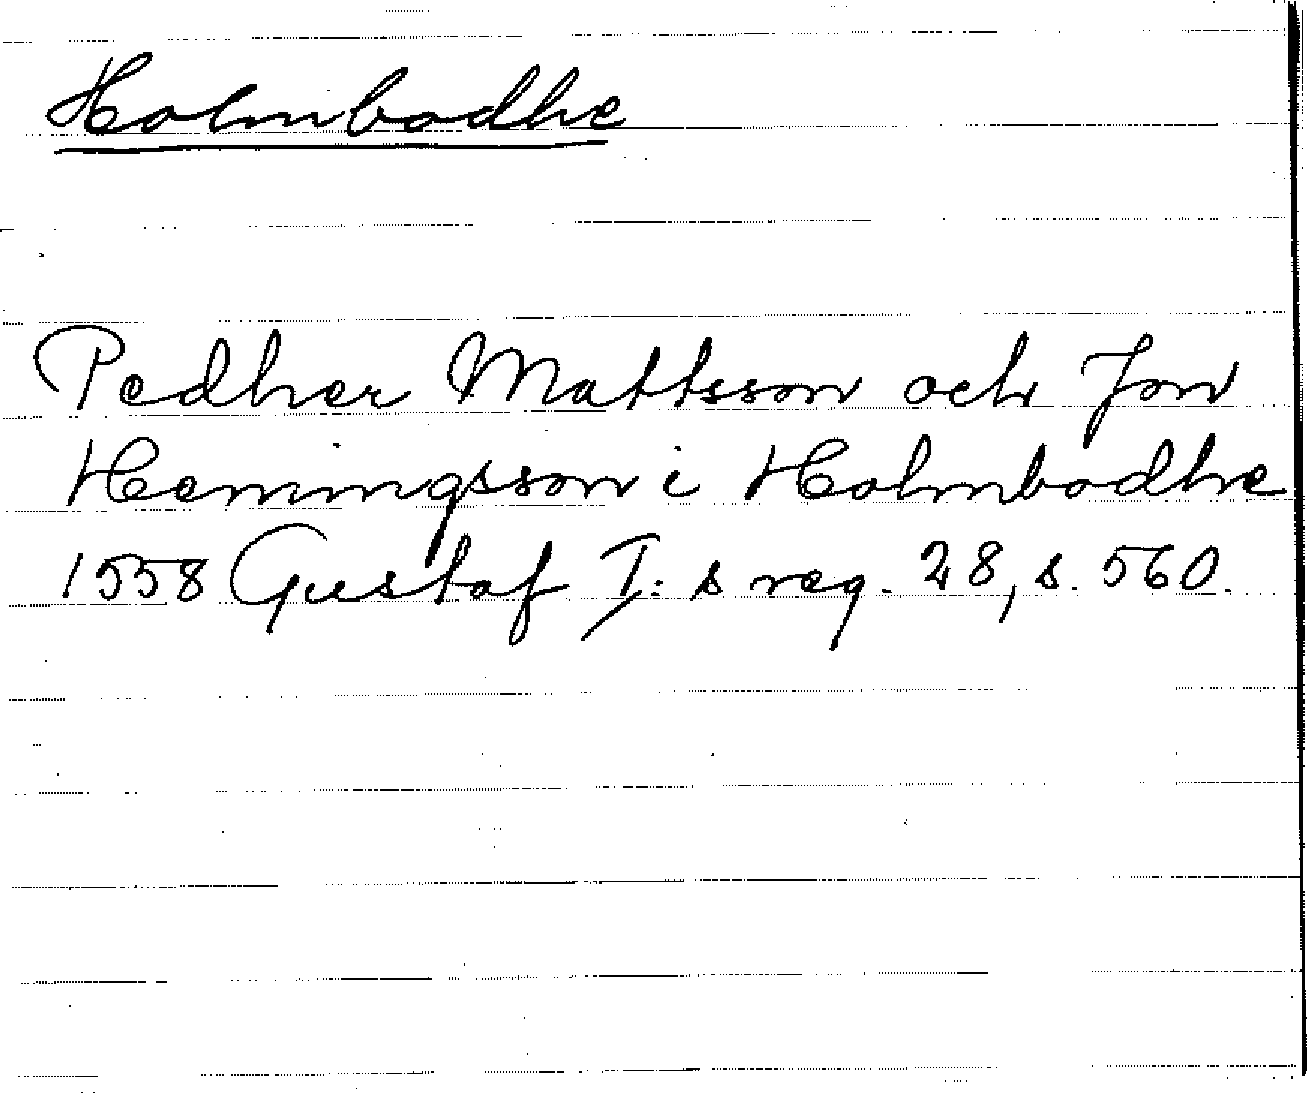 Holmbodhe
Pedher Mattsson och Jon
Hemingsson i Holmbodhe
1558 Gustaf I: s reg. 28, s. 560.